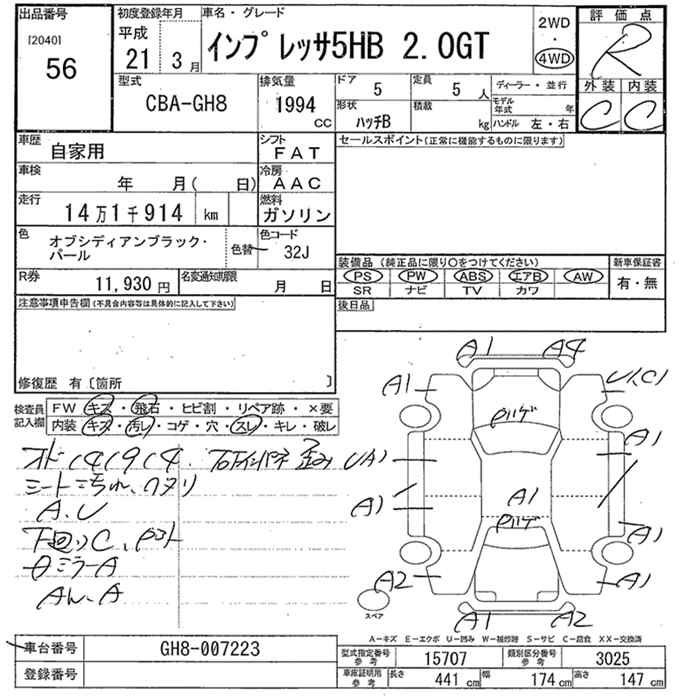 出品番号 初度登録年月 車名・グレード 2WD 評価点
[2040] 平成 インプレッサ5HB 2.0GT ・ R
56 21年 3月 4WD
型式 排気量 ドア 定員 ディーラー・並行 外装 内装
CBA-GH8 1994 5 5人 モデル年式 年 C C
cc 形状 ハッチB 積載 kg ハンドル 左・右
車歴 自家用 シフト FAT セールスポイント(正常に機能するものに限ります)
車検 年 月( 日) 冷房 AAC
走行 14万1千914 km 燃料 ガソリン
色 オブシディアンブラック・ 色替 色コード
パール 32J
装備品 (純正品に限り○をつけてください) 新車保証書
R券 11,930円 名変通知期限 月 日 PS PW ABS エアB AW 有・無
SR ナビ TV カワ
注意事項申告欄(不具合内容等は具体的に記入して下さい) 後日品
修復歴 有〔箇所 〕
A1 A4
A1 U1(C)
検査員 FW キズ・飛石・ヒビ割・リペア跡・×要
記入欄 内装 キズ・汚レ・コゲ・穴・スレ・キレ・破レ
A1
A1
A1
A1
下廻りC
ミラーA
A2 A1
スペア
A1 A2
A-キズ E-エクボ U-凹み W-補修跡 S-サビ C-腐食 XX-交換済
車台番号 GH8-007223 型式指定番号 参考 15707 類別区分番号 参考 3025
登録番号 車庫証明用 参考 長さ 441cm 幅 174cm 高さ 147cm